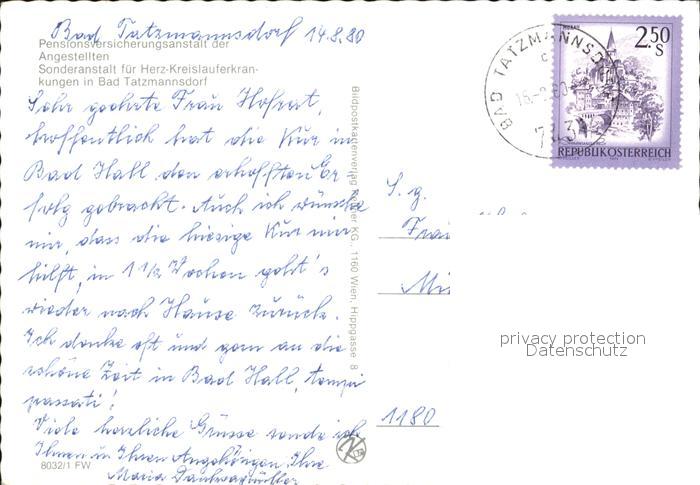 Bad Tatzmannsdorf 14.8.80
Pensionsversicherungsanstalt der
Angestellten
Sonderanstalt für Herz-Kreislauferkran-
kungen in Bad Tatzmannsdorf
Sehr geehrte Frau Hofrat,
hoffentlich hat die Kur in
Bad Hall den erhofften Er-
folg gebracht. Auch ich wünsche
mir, dass die hiesige Kur mir
hilft, in 1 1/2 Wochen geht's
wieder nach Hause zurück.
Ich denke oft und gern an die
schöne Zeit in Bad Hall, tempi
passati!
Viele herzliche Grüsse sende ich
Ihnen u. Ihren Angehörigen, Ihre
Maria
8032/1 FW
Bildpostkartenverlag KG., 1160 Wien, Hippgasse 8
BAD TATZMANNSDORF
2.50
S
REPUBLIK ÖSTERREICH
S. g.
Frau
1180
privacy protection
Datenschutz